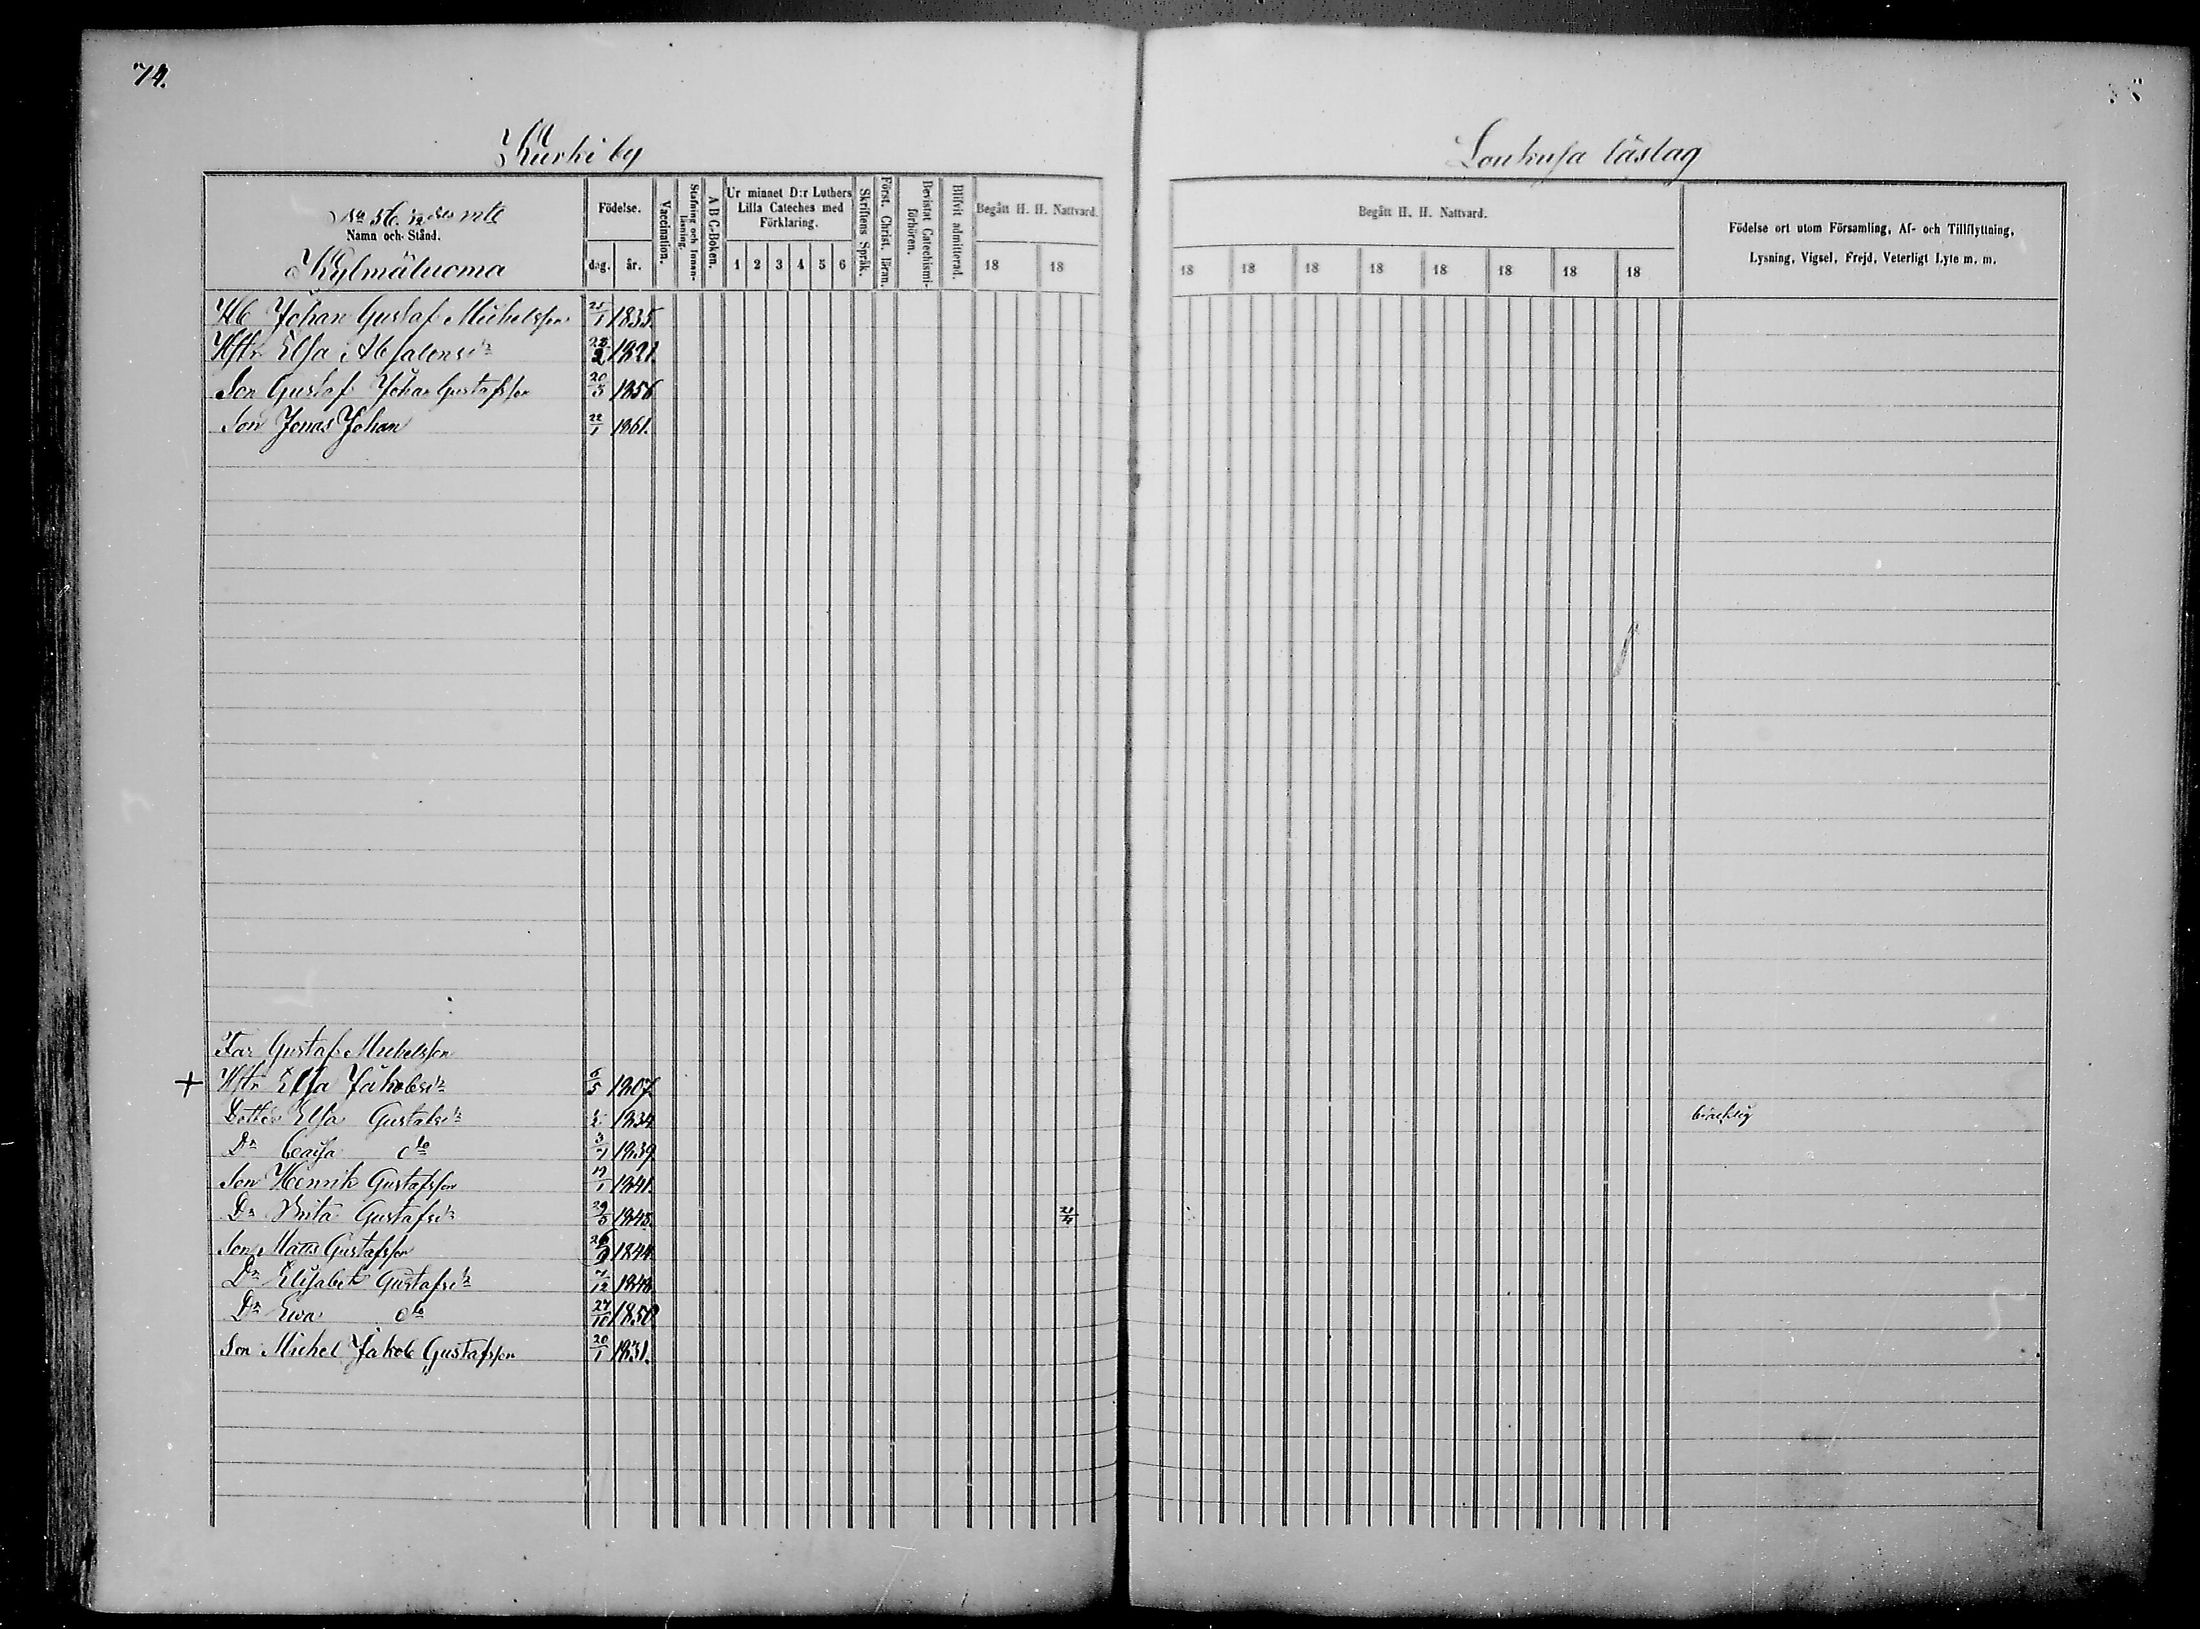 74.
Kurki by
Loukusa läslag
No 56. 1/2 mtl
Namn och Stånd.
Kylmäluoma
Födelse.
dag. år.
Vaccination.
Stafning och Innan-läsning.
A B C-Boken.
Ur minnet D:r Luthers Lilla Cateches med Förklaring.
1 2 3 4 5 6
Skriftens Språk.
Först. Christ. läran.
Bevistat Catechismi-förhören.
Blifvit admitterad.
Begått H. H. Nattvard.
18 18
Begått H. H. Nattvard.
18 18 18 18 18 18 18 18
Födelse ort utom Församling, Af- och Tillflyttning,
Lysning, Vigsel, Frejd, Veterligt Lyte m. m.
Hb Johan Gustaf Michelsson 25/1 1835.
Hstr Elsa Absalonsdr 1821.
Son Gustaf Johan Gustafsson 20/5 1856
Son Jonas Johan 22/1 1861.
Far Gustaf Michelsson
+ Hstr Elsa Jakobsdr 6/5 1807.
Dotter Elsa Gustafsdr 1834 bräcklig
Dr Caisa do 3/7 1839
Son Henrik Gustafsson 17/1 1841.
Dr Brita Gustafsdr 29/5 1843. 21/4
Son Matts Gustafsson 26/9 1844.
Dr Elisabet Gustafsdr 7/12 1848
Dr Ewa do 27/10 1850
Son Michel Jakob Gustafsson 20/1 1831.